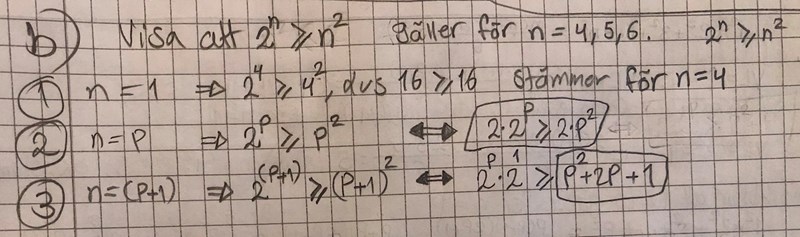 b) Visa att 2ⁿ ≥ n² gäller för n = 4, 5, 6. 2ⁿ ≥ n²
① n = 1 ⇒ 2⁴ ≥ 4², dvs 16 ≥ 16 Stämmer för n=4
② n=p ⇒ 2ᵖ ≥ p² ⟷ 2·2ᵖ ≥ 2·p²
③ n=(p+1) ⇒ 2⁽ᵖ⁺¹⁾ ≥ (p+1)² ⟷ 2ᵖ·2¹ ≥ p²+2p+1